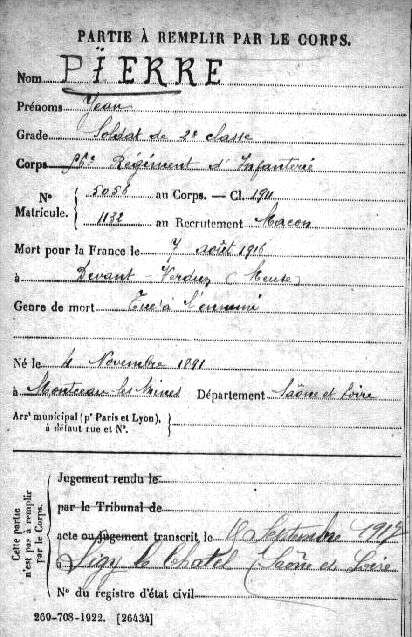 PARTIE À REMPLIR PAR LE CORPS.
Nom PIERRE
Prénoms Jean
Grade Soldat de 2e classe
Corps Régiment d'Infanterie
No 5058 au Corps. — Cl. 1911
Matricule. 1132 au Recrutement Macon
Mort pour la France le 7 août 1916
à Devant-Verdun (Meuse)
Genre de mort Tué à l'ennemi
Né le 4 Novembre 1891
à Montceau les Mines Département Saône et Loire
Arrt municipal (pr Paris et Lyon),
à défaut rue et No.
Cette partie
n'est pas à remplir
par le Corps.
Jugement rendu le
par le Tribunal de
acte ou jugement transcrit le Septembre 1917
à le Chatel (Saône et Loire
No du registre d'état civil
269-708-1922. [26434]